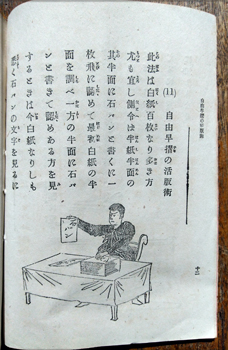 自由早摺の活版術
(11) 自由早摺の活版術
此法は白紙百枚なり多き方
尤も宜し謂令は半紙半面の
其半面に石バンと書くに一
枚飛に認めて最初白紙の半
面を調べ一方の半面に石バ
ンと書きて認めある方を見
するときは今白紙なりしも
悉く石バンの文字を見るに
石バン
十二